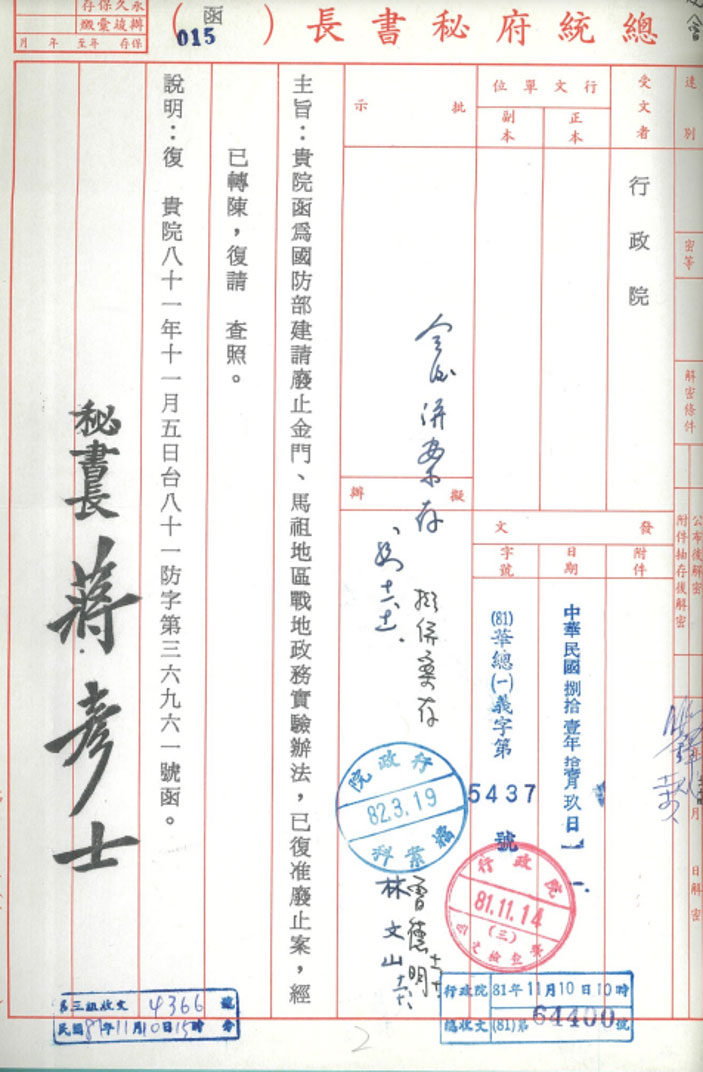 總統府秘書長（函）
015
永久保存
保存 年至 年 月
速別
密等
解密條件
公布後解密
附件抽存後解密
月 日解密
受文者
行政院
行文單位
正本
副本
發文
附件
日期
中華民國捌拾壹年拾壹月玖日
字號
(81)華總(一)義字第
5437
號
批示
擬辦
併案存
擬併案存
主旨：貴院函為國防部建請廢止金門、馬祖地區戰地政務實驗辦法，已復准廢止案，經
已轉陳，復請 查照。
說明：復 貴院八十一年十一月五日台八十一防字第三六九六一號函。
秘書長 蔣彥士
行政院
82.3.19
檔案科
行政院
81.11.14
(三)
曾德明
林文山
行政院 81年11月10日10時
總收文 (81)第64400號
第三組收文 4366 號
民國81年11月10日15時
2